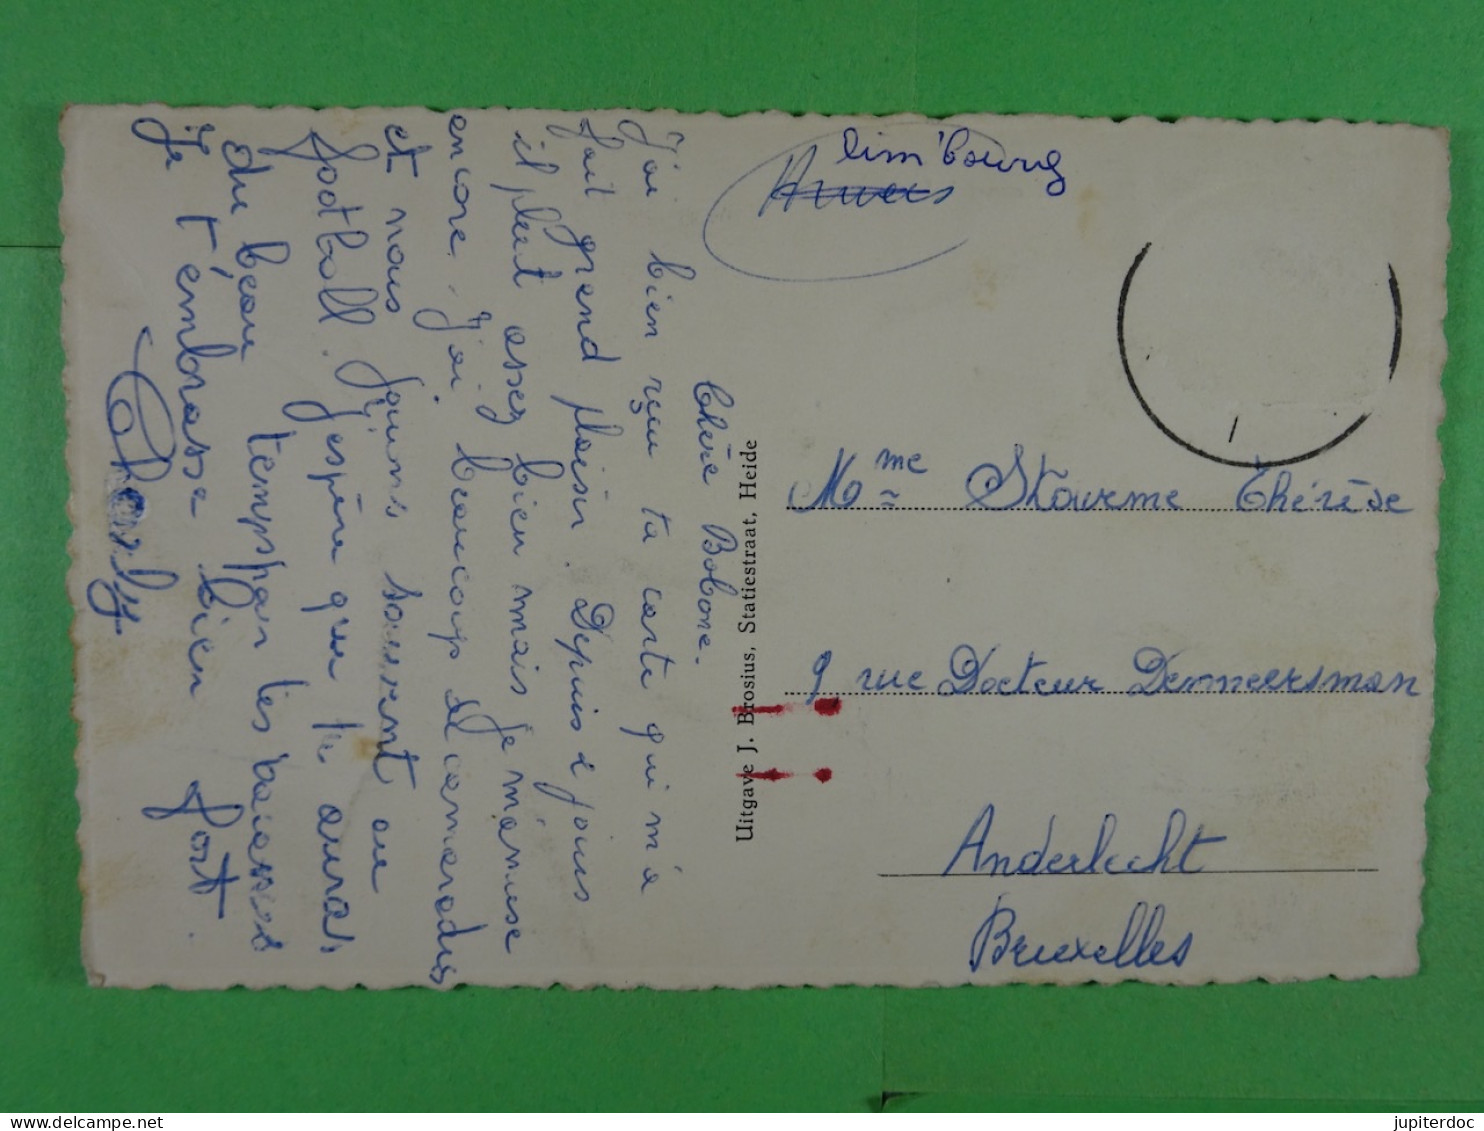 Chère Bobone.
J'ai bien reçu ta carte qui m'a
fait grand plaisir. Depuis 2 jours
il pleut assez bien mais je m'amuse
encore. J'ai beaucoup de camarades
et nous jouons souvent au
football. J'espère que tu auras
du beau temps
Je t'embrasse bien fort.
Charly
Uitgave J. Brosius, Statiestraat, Heide
limbourg
Anvers
Mme Stourme Thérèse
9 rue Docteur Demmeersman
Anderlecht
Bruxelles
jupiterdoc